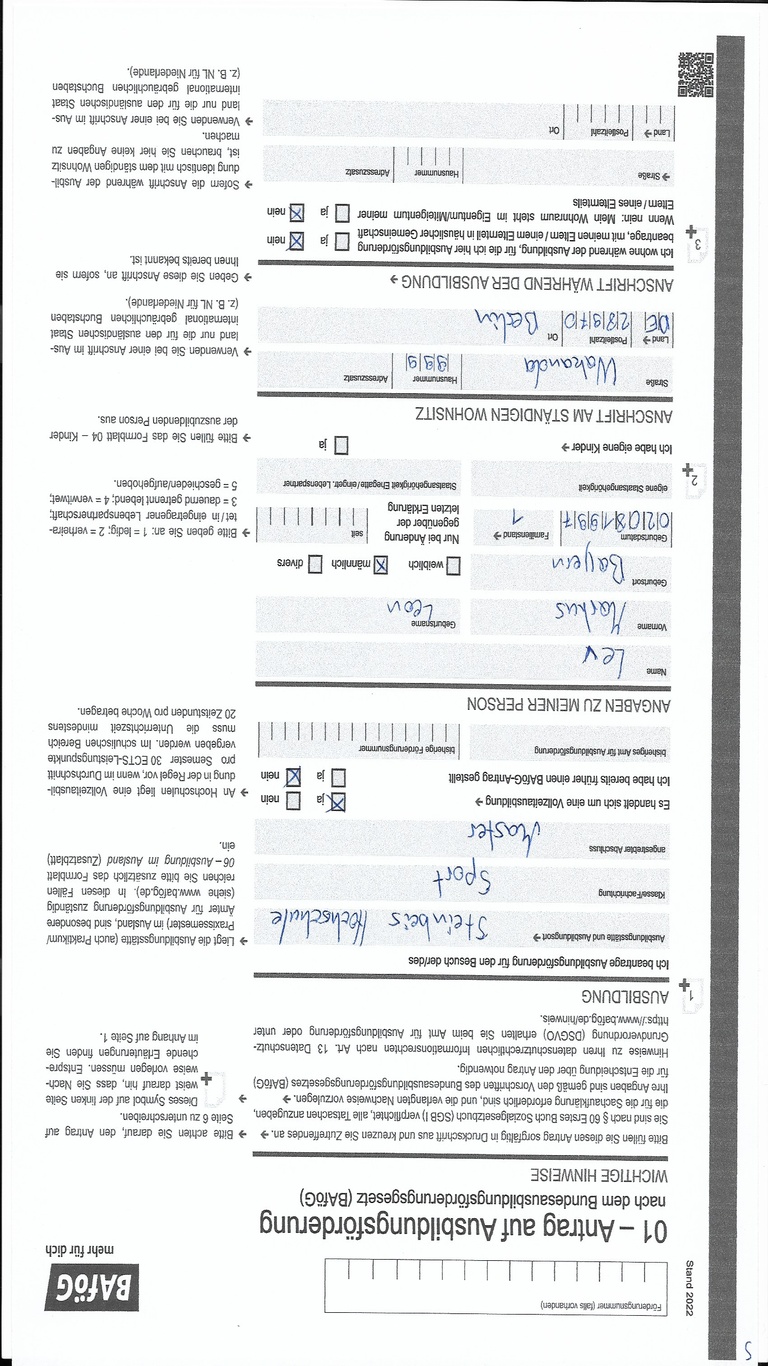 5
Stand 2022
Förderungsnummer (falls vorhanden)
BAföG
mehr für dich
01 – Antrag auf Ausbildungsförderung
nach dem Bundesausbildungsförderungsgesetz (BAföG)
WICHTIGE HINWEISE
Bitte füllen Sie diesen Antrag sorgfältig in Druckschrift aus und kreuzen Sie Zutreffendes an. →
Sie sind nach § 60 Erstes Buch Sozialgesetzbuch (SGB I) verpflichtet, alle Tatsachen anzugeben,
die für die Sachaufklärung erforderlich sind, und die verlangten Nachweise vorzulegen. →
Ihre Angaben sind gemäß den Vorschriften des Bundesausbildungsförderungsgesetzes (BAföG)
für die Entscheidung über den Antrag notwendig.
Hinweise zu Ihren datenschutzrechtlichen Informationsrechten nach Art. 13 Datenschutz-
Grundverordnung (DSGVO) erhalten Sie beim Amt für Ausbildungsförderung oder unter
https://www.bafög.de/hinweis.
→ Bitte achten Sie darauf, den Antrag auf
Seite 6 zu unterschreiben.
→ Dieses Symbol auf der linken Seite
weist darauf hin, dass Sie Nach-
weise vorlegen müssen. Entspre-
chende Erläuterungen finden Sie
im Anhang auf Seite 1.
1
AUSBILDUNG
Ich beantrage Ausbildungsförderung für den Besuch der/des
Ausbildungsstätte und Ausbildungsort → Steinbeis Hochschule
Klasse/Fachrichtung Sport
angestrebter Abschluss Master
Es handelt sich um eine Vollzeitausbildung → ja nein
Ich habe bereits früher einen BAföG-Antrag gestellt ja nein
bisheriges Amt für Ausbildungsförderung bisherige Förderungsnummer
→ Liegt die Ausbildungsstätte (auch Praktikum/
Praxissemester) im Ausland, sind besondere
Ämter für Ausbildungsförderung zuständig
(siehe www.bafög.de). In diesen Fällen
reichen Sie bitte zusätzlich das Formblatt
06 – Ausbildung im Ausland (Zusatzblatt)
ein.
→ An Hochschulen liegt eine Vollzeitausbil-
dung in der Regel vor, wenn im Durchschnitt
pro Semester 30 ECTS-Leistungspunkte
vergeben werden. Im schulischen Bereich
muss die Unterrichtszeit mindestens
20 Zeitstunden pro Woche betragen.
ANGABEN ZU MEINER PERSON
Name Lev
Vorname Markus Geburtsname Leon
Geburtsort Bayern weiblich männlich divers
Geburtsdatum 02081997 Familienstand → 1
Nur bei Änderung
gegenüber der
letzten Erklärung
seit
eigene Staatsangehörigkeit Staatsangehörigkeit Ehegatte/eingetr. Lebenspartner
2
Ich habe eigene Kinder → ja
→ Bitte geben Sie an: 1 = ledig; 2 = verheira-
tet / in eingetragener Lebenspartnerschaft;
3 = dauernd getrennt lebend; 4 = verwitwet;
5 = geschieden/aufgehoben.
→ Bitte füllen Sie das Formblatt 04 – Kinder
der auszubildenden Person aus.
ANSCHRIFT AM STÄNDIGEN WOHNSITZ
Straße Wakanda Hausnummer 999 Adresszusatz
Land → DE Postleitzahl 28970 Ort Berlin
→ Verwenden Sie bei einer Anschrift im Aus-
land nur die für den ausländischen Staat
international gebräuchlichen Buchstaben
(z. B. NL für Niederlande).
ANSCHRIFT WÄHREND DER AUSBILDUNG →
→ Geben Sie diese Anschrift an, sofern sie
Ihnen bereits bekannt ist.
3
Ich wohne während der Ausbildung, für die ich hier Ausbildungsförderung
beantrage, mit meinen Eltern / einem Elternteil in häuslicher Gemeinschaft ja nein
Wenn nein: Mein Wohnraum steht im Eigentum/Miteigentum meiner
Eltern / eines Elternteils ja nein
→ Straße Hausnummer Adresszusatz
Land → Postleitzahl Ort
→ Sofern die Anschrift während der Ausbil-
dung identisch mit dem ständigen Wohnsitz
ist, brauchen Sie hier keine Angaben zu
machen.
→ Verwenden Sie bei einer Anschrift im Aus-
land nur die für den ausländischen Staat
international gebräuchlichen Buchstaben
(z. B. NL für Niederlande).